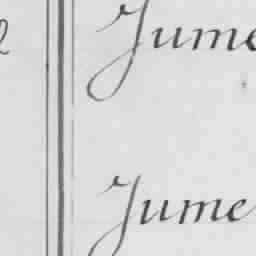 Jume
Jume